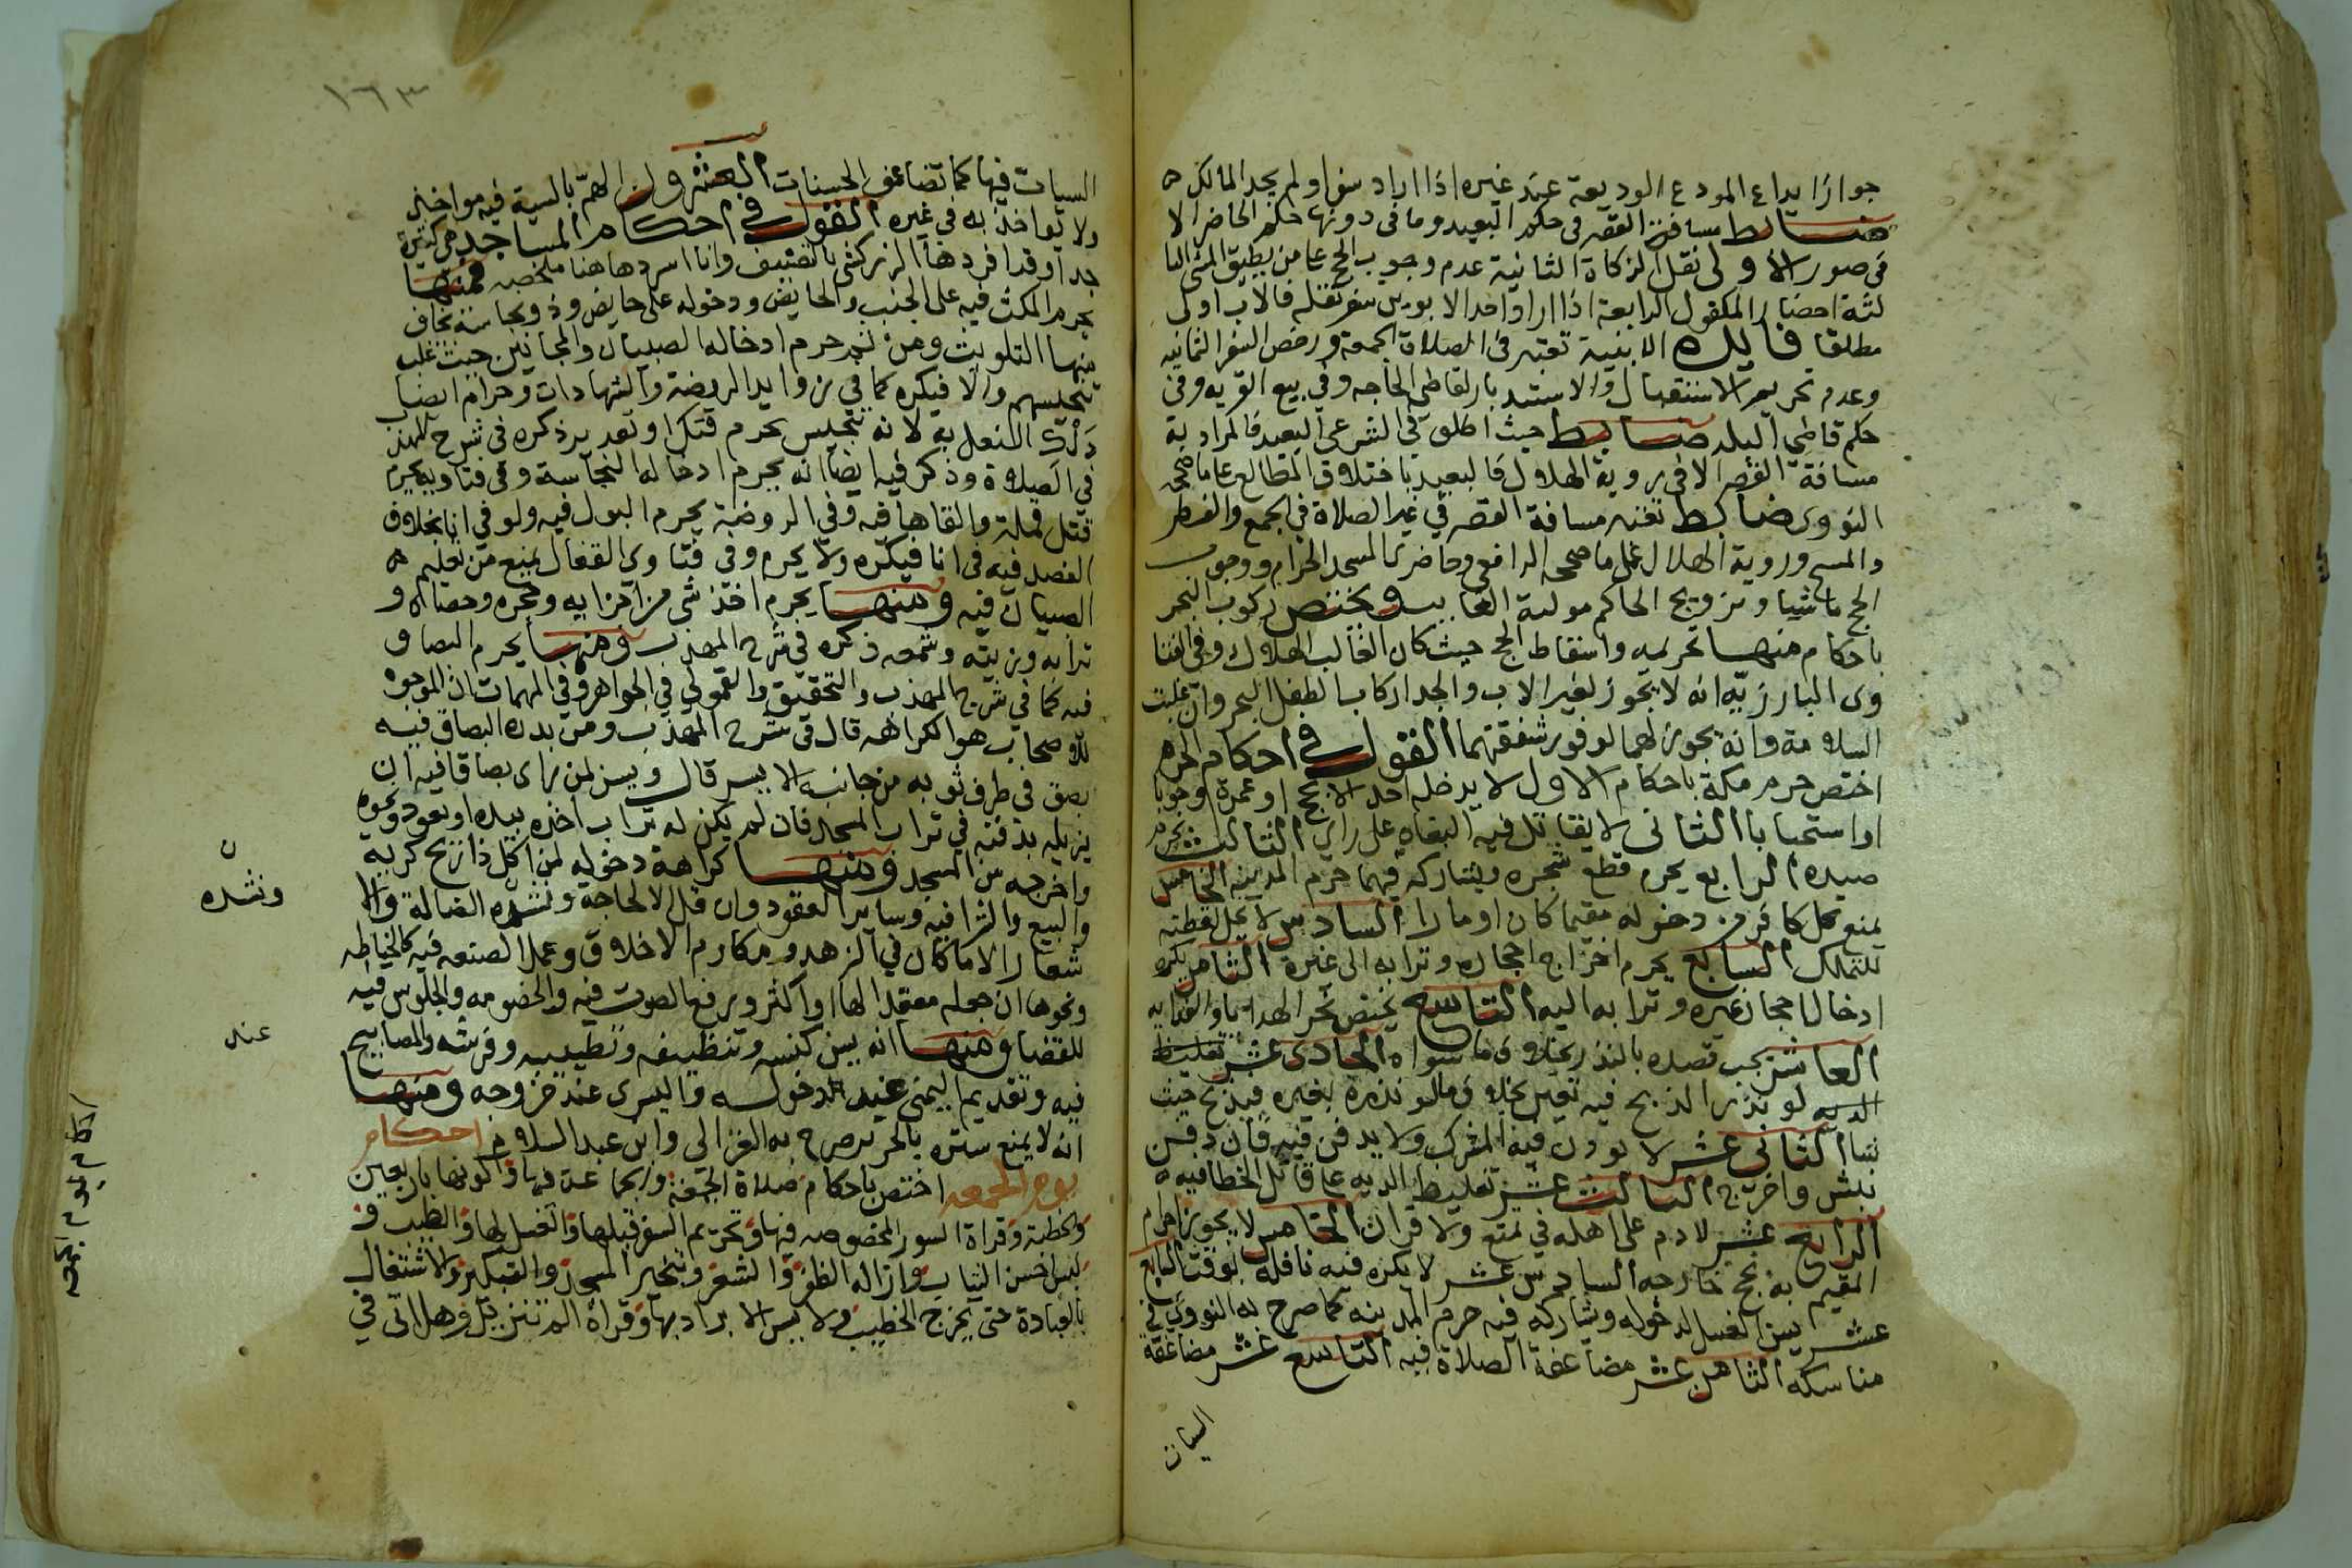 جواز ايداع المودع الوديعة عند غيره اذا اراد سفرا ولم يجد المالك
ضابط مسافة القصر في حكم البعيد وما في دونها حكم الحاضر الا
في صور الاولى نقل الزكاة الثانية عدم وجوب الحج على من يطيق المشي الثا
لثة احضار المكفول الرابعة اذا اراد احد الابوين سفر نقله فالاب اولى
مطلقا فايده الابنية تعتبر في الصلاة الجمعة ورخص السفر الثمانيه
وعدم تحريم الاستقبال والاستدبار لقاضي الحاجه وفي بيع القريه وفي
حكم قاضي البلد ضابط حيث اطلق في الشرع البعيد فالمراد به
مسافة القصر الا في روية الهلال فالبعيد باختلاف المطالع على ما صححه
النووي ضابط تعتبر مسافة القصر في غير الصلاة في الجمع والفطر
والمسح وروية الهلال على ما صححه الرافعي وحاضري المسجد الحرام ووجوب
الحج ماشيا وتزويج الحاكم مولية الغايب ويختص ركوب البحر
باحكام منها تحريمه واسقاط الحج حيث كان الغالب الهلاك وفي الفتا
وى البارزيه انه لا يجوز لغير الاب والجد اركاب الطفل البحر وان غلبت
السلامة وانه يجوز لهما لوفور شفقتهما القول في احكام الحرم
اختص حرم مكة باحكام الاول لا يدخله احد الا بحج او عمرة وجوبا
او استحبابا الثاني لا يقاتل فيه البغاه على راي الثالث يحرم
صيده الرابع يحرم قطع شجره ويشاركه فيهما حرم المدينه الخامس
يمنع كل كافر من دخوله مقيما كان او مارا السادس لا تحل لقطته
للتملك السابع يحرم اخراج احجاره وترابه الى غيره الثامن يكره
ادخال احجار غيره وترابه اليه التاسع يختص نحر الهدايا والفدا به
العاشر يجب قصده بالنذر بخلاف ما سواه الحادي عشر تغليظ
الديه لو نذر الذبح فيه تعين بخلاف ما لو نذره بغيره فيذبح حيث
شا الثاني عشر لا يوذن فيه المشرك ولا يدفن فيه فان دفن
نبش واخرج الثالث عشر تغليظ الديه على قاتل الخطا فيه
الرابع عشر لا دم على اهله في تمتع ولا قران الخامس لا يجوز احرام
المقيم به بحج خارجه السادس عشر لا يكره فيه نافلة بوقت السابع
عشر يسن الغسل لدخوله وشاركه فيه حرم المدينه كما صرح به النووي في
مناسكه الثامن عشر مضاعفة الصلاة فيه التاسع عشر مضاعفة
السيات
١٦٣
السيات فيها كما تضاعف الحسنات العشرون الهم بالسية فيه مواخذ
ولا يواخذ به في غيره القول في احكام المساجد هي كثيرة
جدا وقد افردها الزركشي بالتصنيف وانا اسردها هنا ملخصه فمنها
يحرم المكث فيه على الجنب والحايض ودخوله على حايض وذو نجاسة يخاف
منها التلويث ومن ثم حرم ادخاله الصبيان والمجانين حيث غلب
تنجيسهم والا فيكره كما في زوايد الروضة والشهادات وحرام ايضا
دلك النعل به لانه تنجيس يحرم قتل او تعدير ذكره في شرح المهذب
في الصلاة وذكر فيه ايضا انه يحرم ادخاله النجاسة وفي فتاويه يحرم
قتل قملة والقاها فيه وفي الروضة يحرم البول فيه ولو في انا بخلاف
الفصد فيه في انا فيكره ولا يحرم وفي فتاوى القفال يمنع من تعليم
الصبيان فيه ومنها يحرم اخذ شي من اجزايه وحجره وحصاه و
ترابه وزيته وشمعه ذكره في شرح المهذب ومنها يحرم البصاق
فيه كما في شرح المهذب والتحقيق والقمولي في الجواهر وفي المهمات ان الموجود
للاصحاب هو الكراهه قال في شرح المهذب ومن بدره البصاق فيه
بصق في طرف ثوبه من جانبه الايسر قال ويسن لمن راى بصاقا فيه ان
يزيله بدفنه في تراب المسجد فان لم يكن له تراب اخذه بيده او بعود ونحوه
واخرجه من المسجد ومنها كراهة دخوله لمن اكل ذا ريح كريه
والبيع والشرا فيه وساير العقود وان قل الا لحاجة ونشده الضالة والا
شعار الا ما كان في الزهد ومكارم الاخلاق وعمل الصنعه فيه كالخياطه
ونحوها ان جعله معقدا لها او اكثر ويرفع الصوت فيه والخصومه والجلوس فيه
للقضا ومنها انه يسن كنسه وتنظيفه وتطييبه وفرشه والمصابيح
فيه وتقديم اليمنى عند دخوله واليسرى عند خروجه ومنها
انه لا يمنع ستره بالحرير صرح به الغزالي وابن عبد السلام احكام
يوم الجمعه اختص باحكام صلاة الجمعة وبجماعة فيها وكونها باربعين
والخطبة وقراة السور المخصوصه فيها وتحريم السفر قبلها والغسل لها والطيب و
لبس احسن الثياب وازالة الظفر والشعر وتبخير المسجد والتبكير والاشتغال
بالعبادة حتى يخرج الخطيب ولا يسن الابراد بها وقراة الم تنزيل وهل اتى في
ونشده
ن
عند
احكام يوم الجمعه